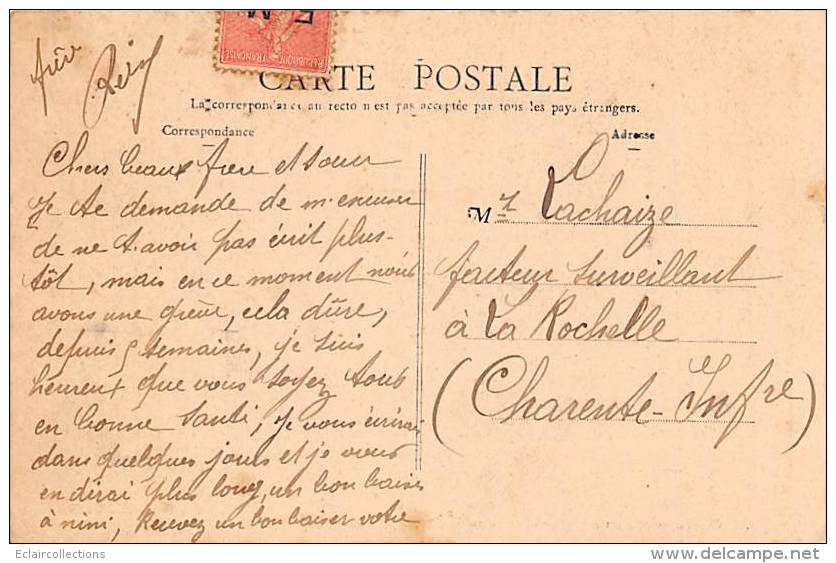 frère
RÉPUBLIQUE FRANÇAISE
F M
CARTE POSTALE
La correspondance au recto n'est pas acceptée par tous les pays étrangers.
Correspondance
Adresse
Chers beaux frère et soeur
Je te demande de m'excuser
de ne t'avoir pas écrit plus-
tôt, mais en ce moment nous
avons une grève, cela dure,
depuis 5 semaines, je suis
heureux que vous soyez tous
en bonne santé, je vous écrirai
dans quelques jours et je vous
en dirai plus long, un bon baiser
à nini, Recevez un bon baiser votre
Mr Lachaize
facteur surveillant
à La Rochelle
(Charente-Infre)
Eclaircollections
www.delcampe.net